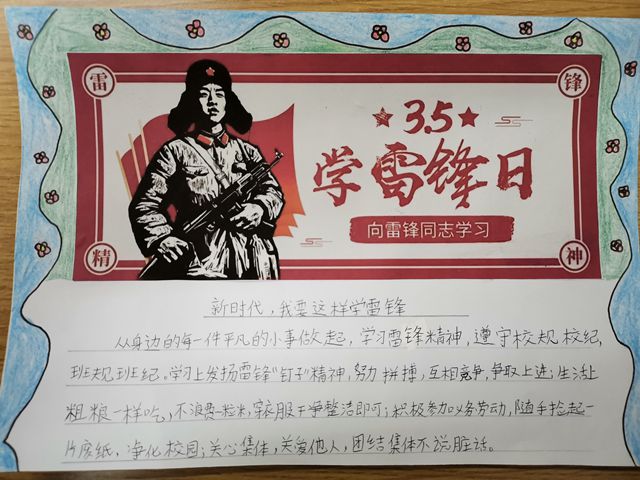 雷 锋
3.5
学雷锋日
向雷锋同志学习
精 神
新时代，我要这样学雷锋
从身边的每一件平凡的小事做起，学习雷锋精神，遵守校规校纪，
班规班纪。学习上发扬雷锋“钉子”精神，努力拼搏，互相竞争，争取上进；生活上
粗粮一样吃，不浪费一粒米，穿衣服干净整洁即可；积极参加义务劳动，随手捡起一
片废纸，净化校园；关心集体，关爱他人，团结集体不说脏话。